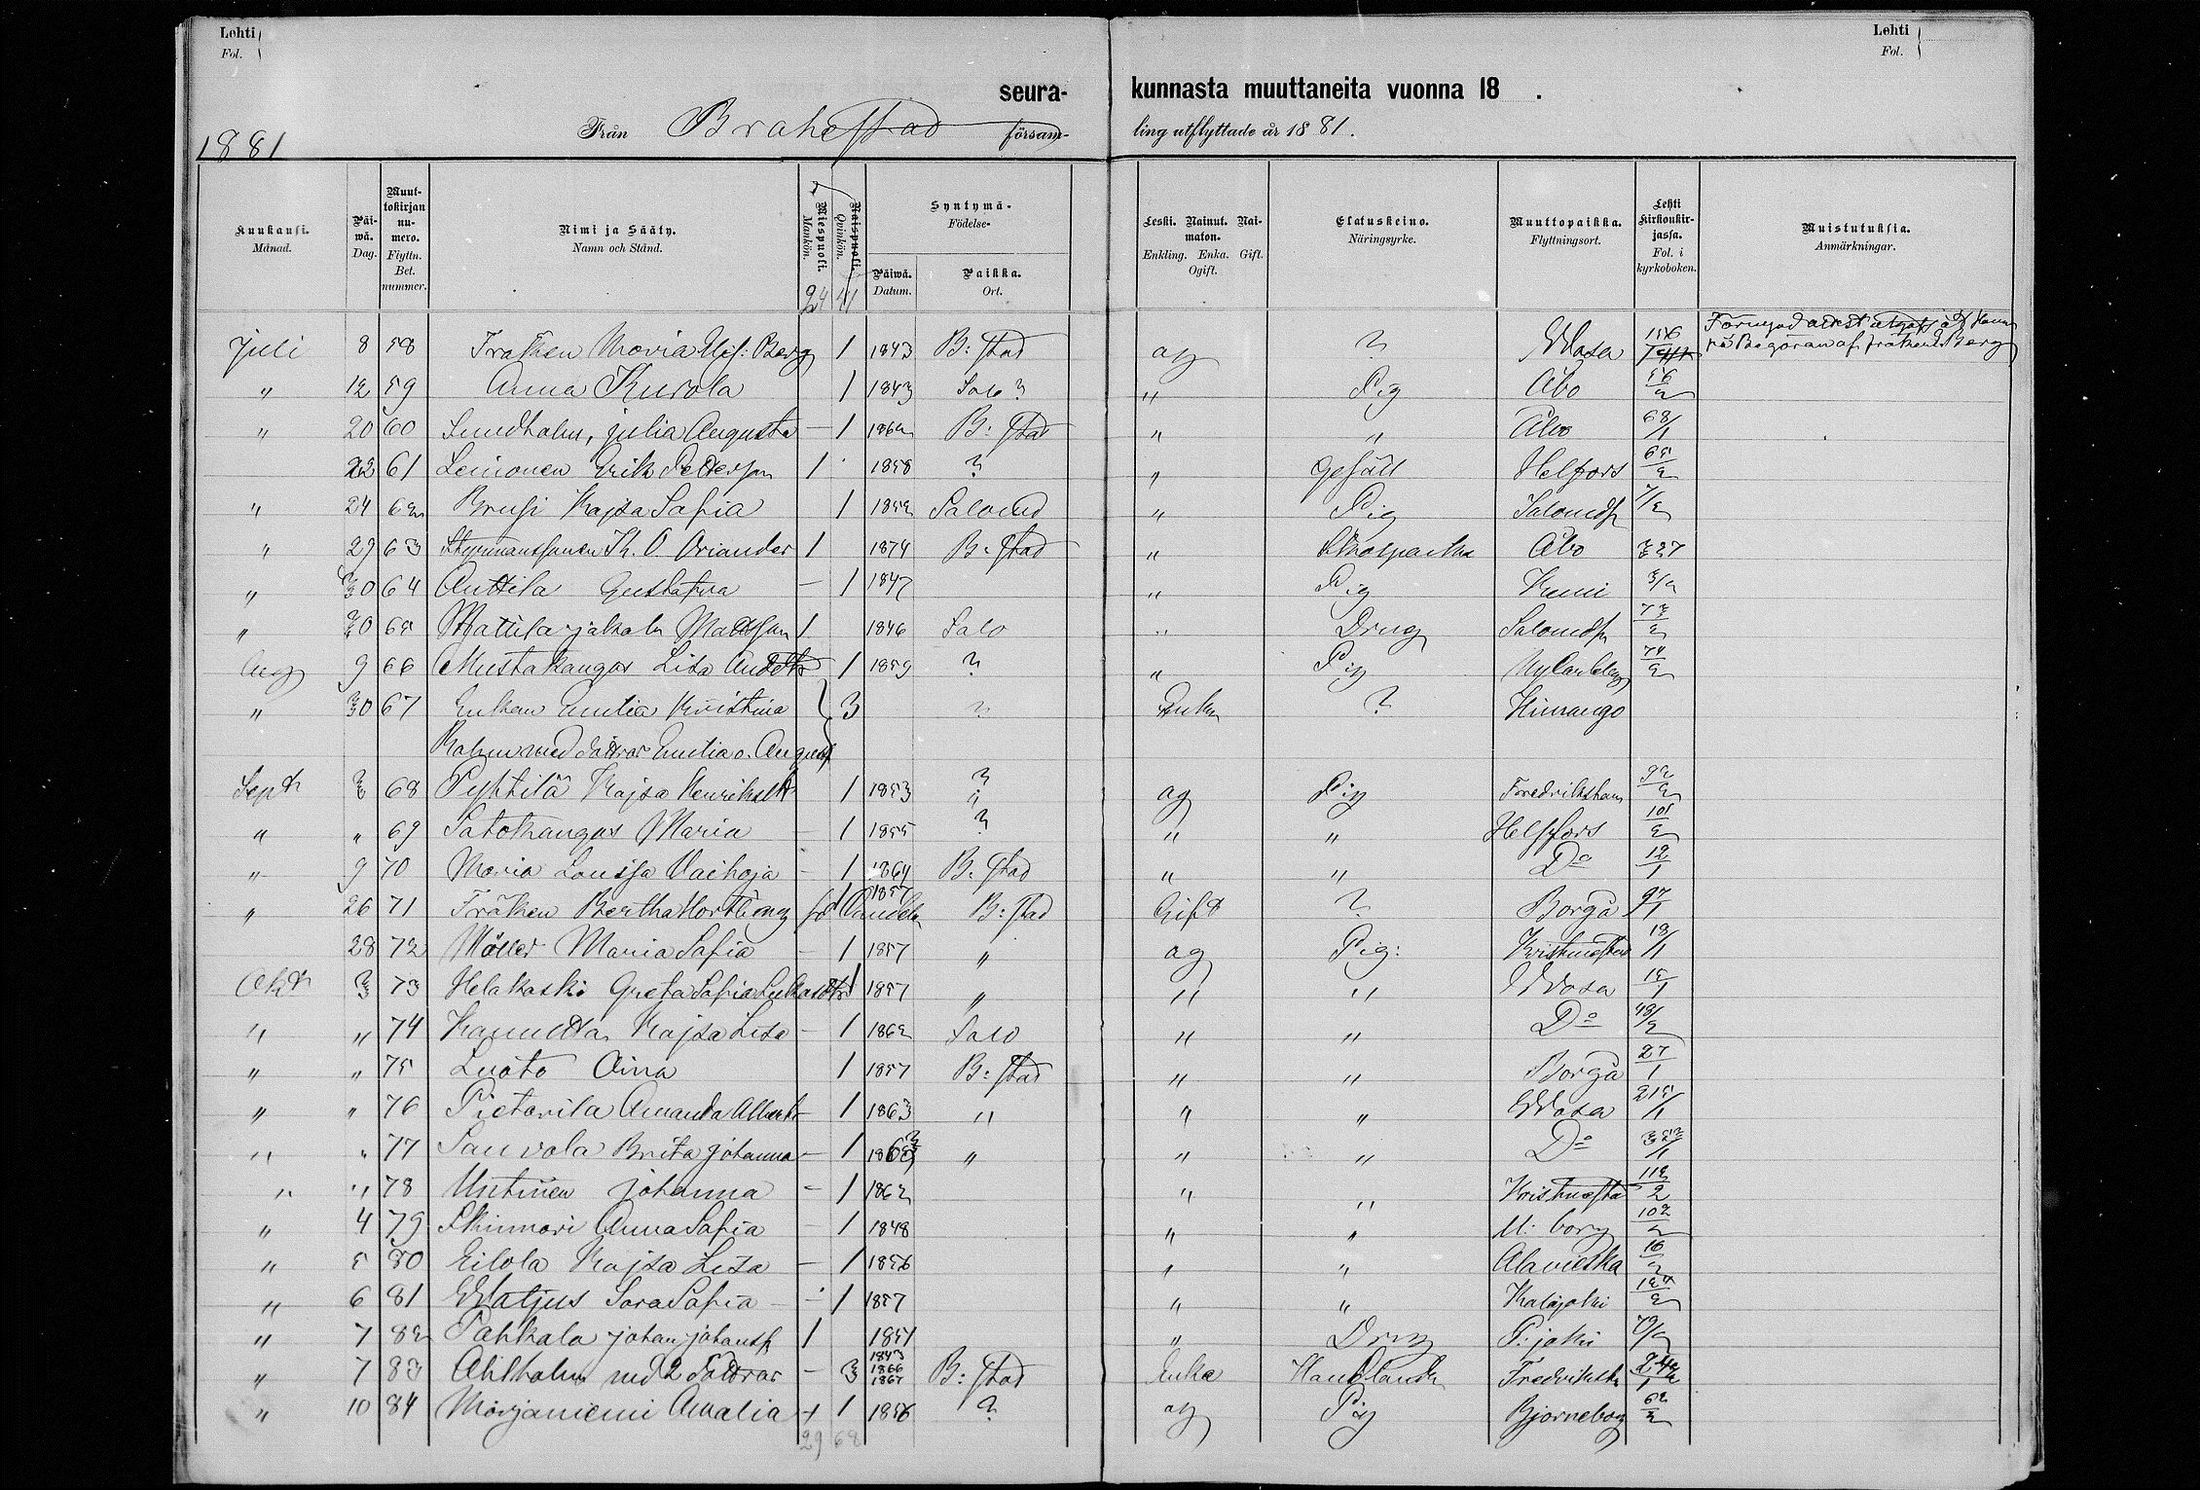 Lehti Fol.
Lehti Fol.
seura- kunnasta muuttaneita vuonna 18 .
1881 Från Brahestad försam- ling utflyttade år 1881.
Kuukausi. Månad. Päi-wä. Dag. Muut-tokirjan nu-mero. Flyttn. Bet. nummer. Nimi ja Sääty. Namn och Stånd. Miespuoli. Mankön. Naispuoli. Qvinkön. Syntymä- Födelse- Päiwä. Datum. Paikka. Ort. Leski. Nainut. Nai-maton. Enkling. Enka. Gift. Ogift. Elatuskeino. Näringsyrke. Muuttopaikka. Flyttningsort. Lehti kirkonkir-jassa. Fol. i kyrkoboken. Muistutuksia. Anmärkningar.
24 41
Juli 8 58 Fröken Maria Berg 1 1843 B: stad og ? Wasa 156
på Begäran af fröken Berg
" 12 59 Anna Kurola 1 1843 Salo ? " Pig Åbo 56/2
" 20 60 Sundholm, Julia Augusta – 1 1862 B: stad " " Åbo 68/1
22 61 Leinonen Erik Pettersson 1 1858 ? " Gesäll Helsfors 65/2
" 24 62 Brusi Kajsa Sofia 1 1852 Salo " Pig 7/2
" 29 63 Styrmanssonen K. O. Oriander 1 1874 B: stad " Åbo 327
" 30 64 Anttila Gustafva – 1 1847 " Pig Kemi 3/2
" 30 65 Mattila Jakob Mattsson 1 1846 Salo " Dreng 73/2
Aug 9 66 Mustakangas Lisa Anddtr 1 1859 ? " Pig NyCarleby 74/2
" 30 67 Enkan Emilia Kristina 3 ? Enka ? Himango
med döttrar Emilia o. August
Sept 3 68 Pyhtilä Kajsa Henriksdtr 1 1853 ? og Pig Fredrikshamn 92/2
" " 69 Satokangas Maria – 1 1855 ? " " Helsfors 101/2
" 9 70 Maria Lovisa Vaihoja – 1 1864 B: stad " " Do 12/1
" 26 71 Fröken Bertha 1 1857 B: stad Gift ? Borgå 97/1
28 72 Möller Maria Sofia – 1 1857 " og Pig: Kristinestad 18/1
Okt 3 73 Helakoski Greta Sofia Lukasdtr 1 1857 " " " Wasa 15/1
" " 74 Kajsa Lisa – 1 1862 Salo " " Do 48/2
" " 75 Luoto Aina 1 1857 B: stad " " Borgå 27/1
" " 76 Pietarila Amanda – 1 1863 " " " Wasa 215/1
" " 77 Sauvola Brita Johanna – 1 1863 " " " Do 353/1
" " 78 Untinen Johanna – 1 1862 " " Kristinestad 112/2
" 4 79 Anna Sofia – 1 1848 " " U: borg 102/2
" 5 80 Eilola Kajsa Lisa – 1 1856 " " Alavieska 16/2
" 6 81 Watjus Sara Sofia – 1 1857 " " Kalajoki 124/2
" 7 82 Pahkala Johan Johanss 1 1851 " Dreng P: joki 70/2
" 7 83 Ahlholm med 2 Döttrar – 3 1843 1866 1867 B: stad Enka Fredriksh 242/1
" 10 84 Morjaniemi Amalia 1 1856 ? og Pig Bjorneborg 62/2
29 68